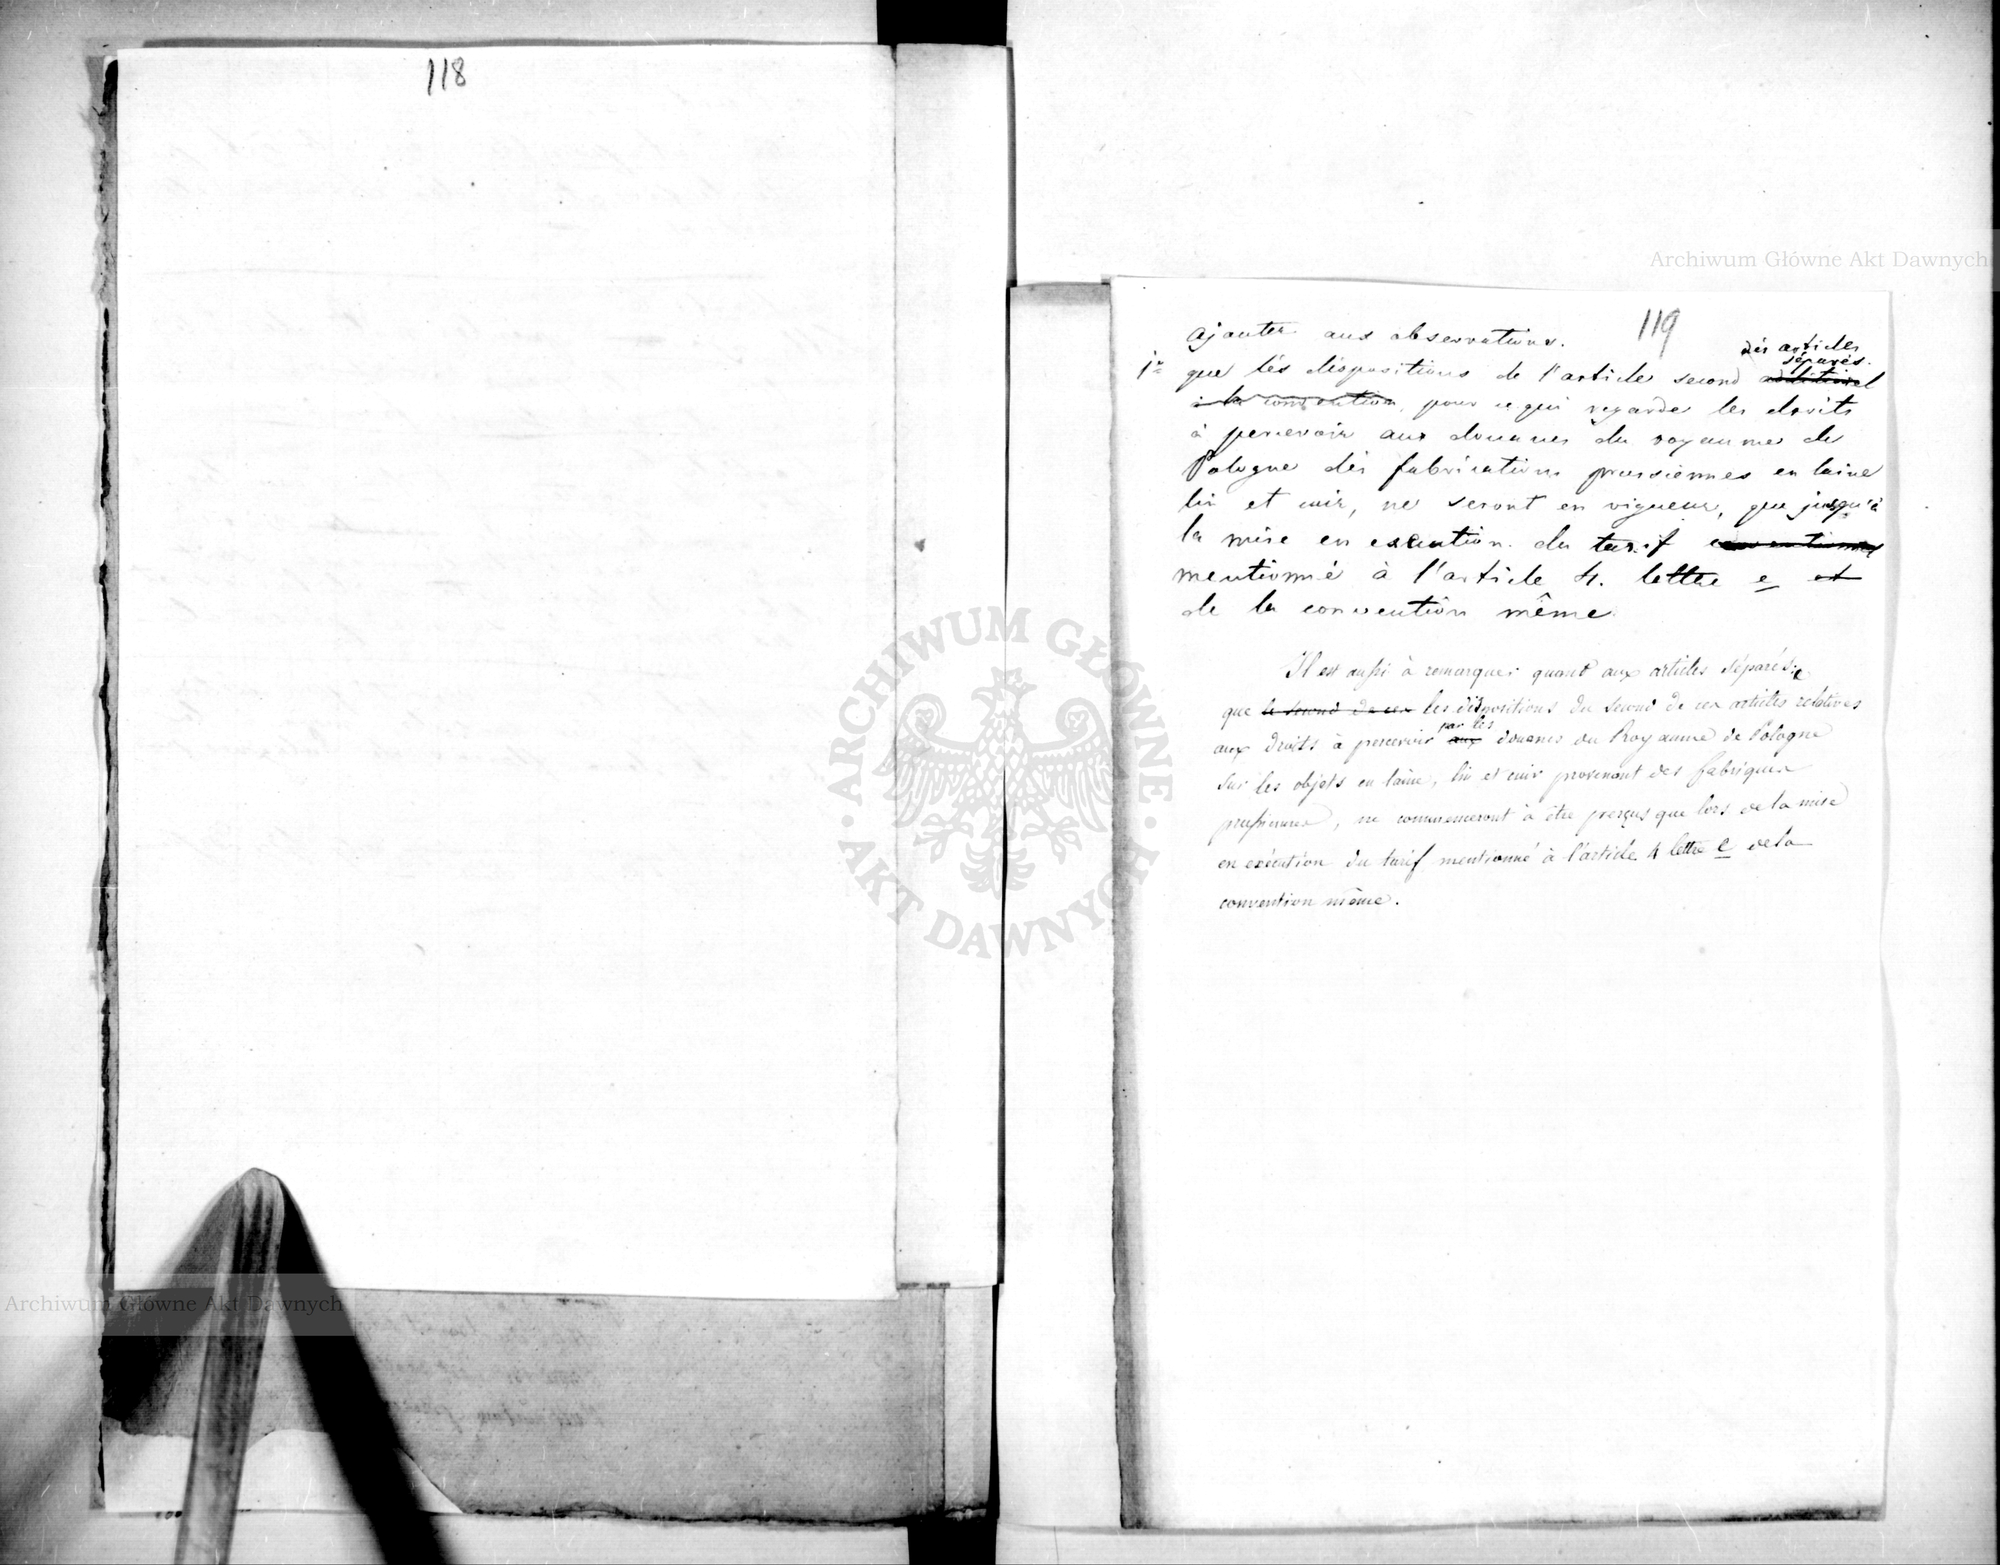 118
119
Ajouter aux observations.
des articles
séparés.
1° que les dispositions de l'article second additionel
à la convention, pour ce qui regarde les droits
à percevoir aux douanes du royaume de
Pologne des fabrications prussiennes en laine
lin et cuir, ne seront en vigueur, que jusqu'à
la mise en exécution du tarif
mentionné à l'article 4. lettre e et
de la convention même
Il est aussi à remarquer quant aux articles séparés
que le second de ces les dispositions du second de ces articles relatives
par les
aux droits à percevoir aux douanes du Royaume de Pologne
sur les objets en laine, lin et cuir provenant des fabriques
prussiennes, ne commenceront à être perçus que lors de la mise
en exécution du tarif mentionné à l'article 4 lettre e de la
convention même.
Archiwum Główne Akt Dawnych
ARCHIWUM GŁÓWNE
· AKT DAWNYCH ·
Archiwum Główne Akt Dawnych